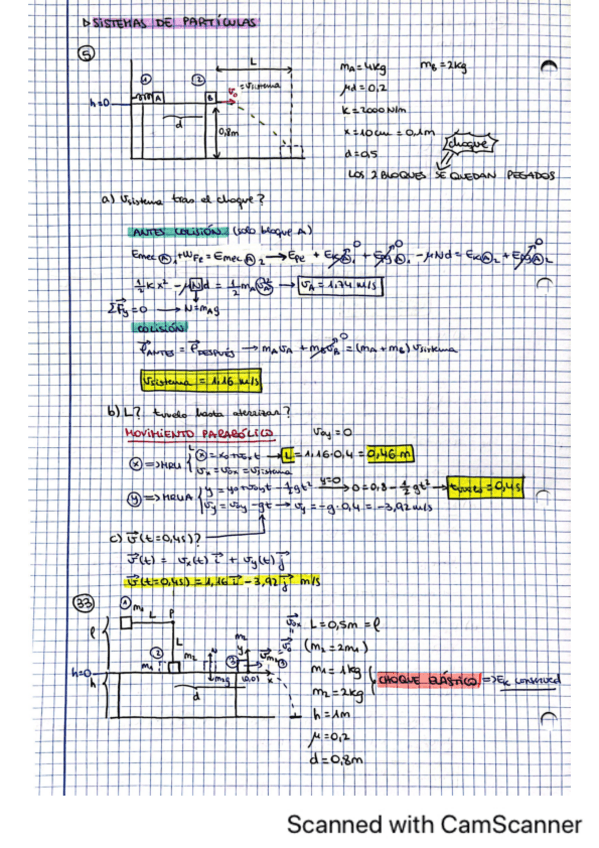 ▷ SISTEMAS DE PARTÍCULAS
5
① ② L
h=0 A B v₀ = vsistema
d 0,8m
mA=4kg mB=2kg
μd=0,2
K=2000 N/m
x=10cm = 0,1m
d=0,5
choque
LOS 2 BLOQUES SE QUEDAN PEGADOS
a) vsistema tras el choque?
ANTES COLISIÓN (solo bloque A)
Emec Ⓐ₁ + WFr = Emec Ⓐ₂ → Epe + EkⒶ₁ + EgⒶ₁ - μNd = EkⒶ₂ + EgⒶ₂
½kx² - μNd = ½mA vA² → vA = 1,74 m/s
ΣFy=0 → N=mAg
COLISIÓN
PANTES = PDESPUÉS → mAvA + mBvB = (mA+mB) vsistema
vsistema = 1,16 m/s
b) L? tvuelo hasta aterrizar?
MOVIMIENTO PARABÓLICO v0y=0
ⓧ => MRU { x = x₀+v₀·t → L = 1,16·0,4 = 0,46 m
vx = v0x = vsistema
ⓨ => MRUA { y = y₀+v0yt - ½gt² y=0 → 0=0,8 - ½gt² → tvuelo = 0,4s
vy = v0y - gt → vy = -g·0,4 = -3,92 m/s
c) v(t=0,4s)?
v(t) = vx(t) i + vy(t) j
v(t=0,4s) = 1,16 i - 3,92 j m/s
33
① m₁ L P
L
② m₁ m₂ m₂g (0,0) x
h=0
h d
L=0,5m = l
(m₂=2m₁)
m₁=1kg
m₂=2kg
CHOQUE ELÁSTICO => Ek conserved
h=1m
μ=0,2
d=0,8m
Scanned with CamScanner